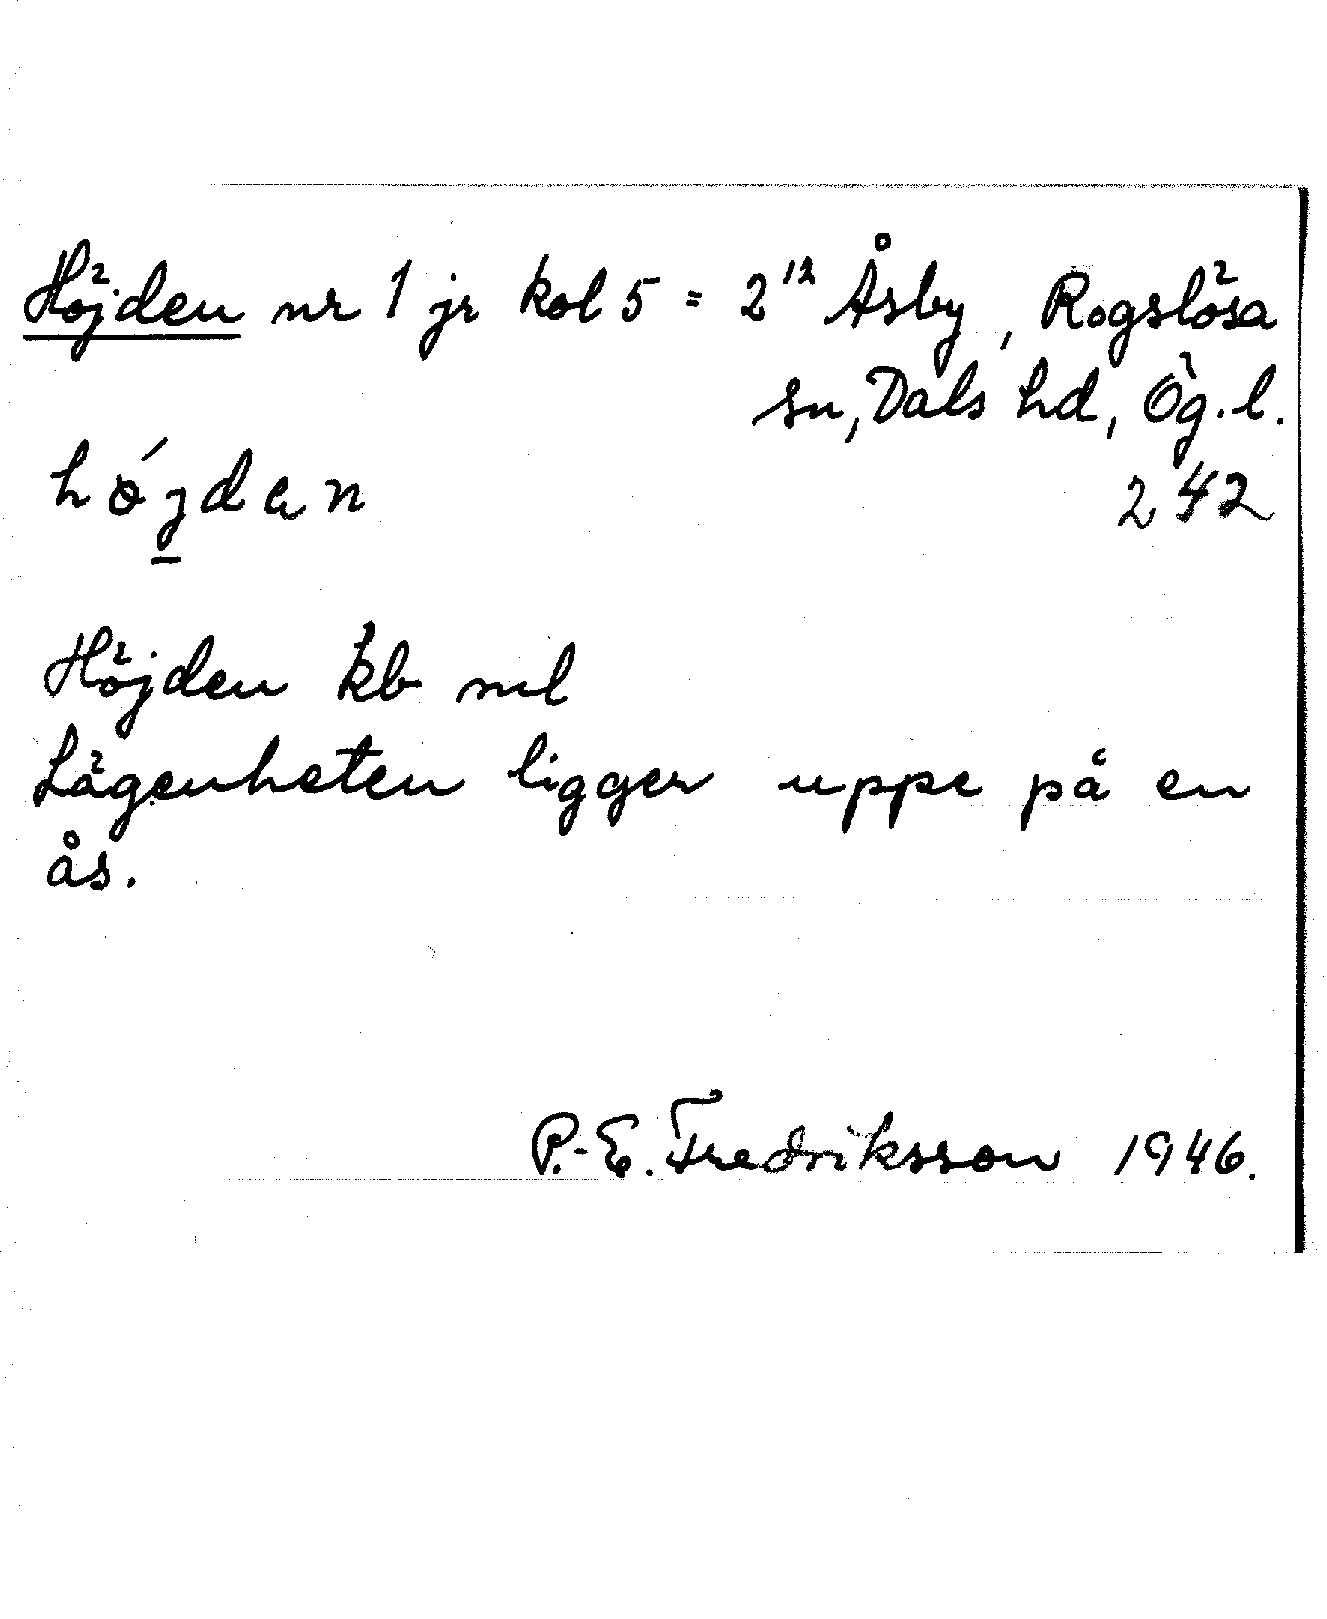 Höjden nr 1 jr kol 5 = 2¹² Åsby, Rogslösa
sn, Dals hd, Ög. l.
hǿjdən 242
Höjden kb ml
Lägenheten ligger uppe på en
ås.
P.-E. Fredriksson 1946.